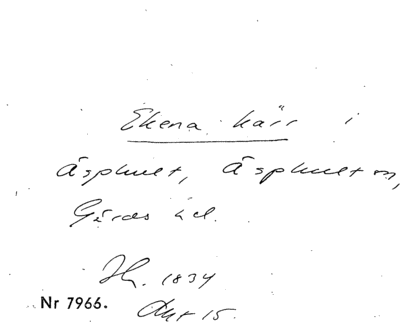 Ekena kärr i
Äsphult, Äsphult sn,
Gärds hd.
Hr. 1834
Nr 7966.
Akt 15.